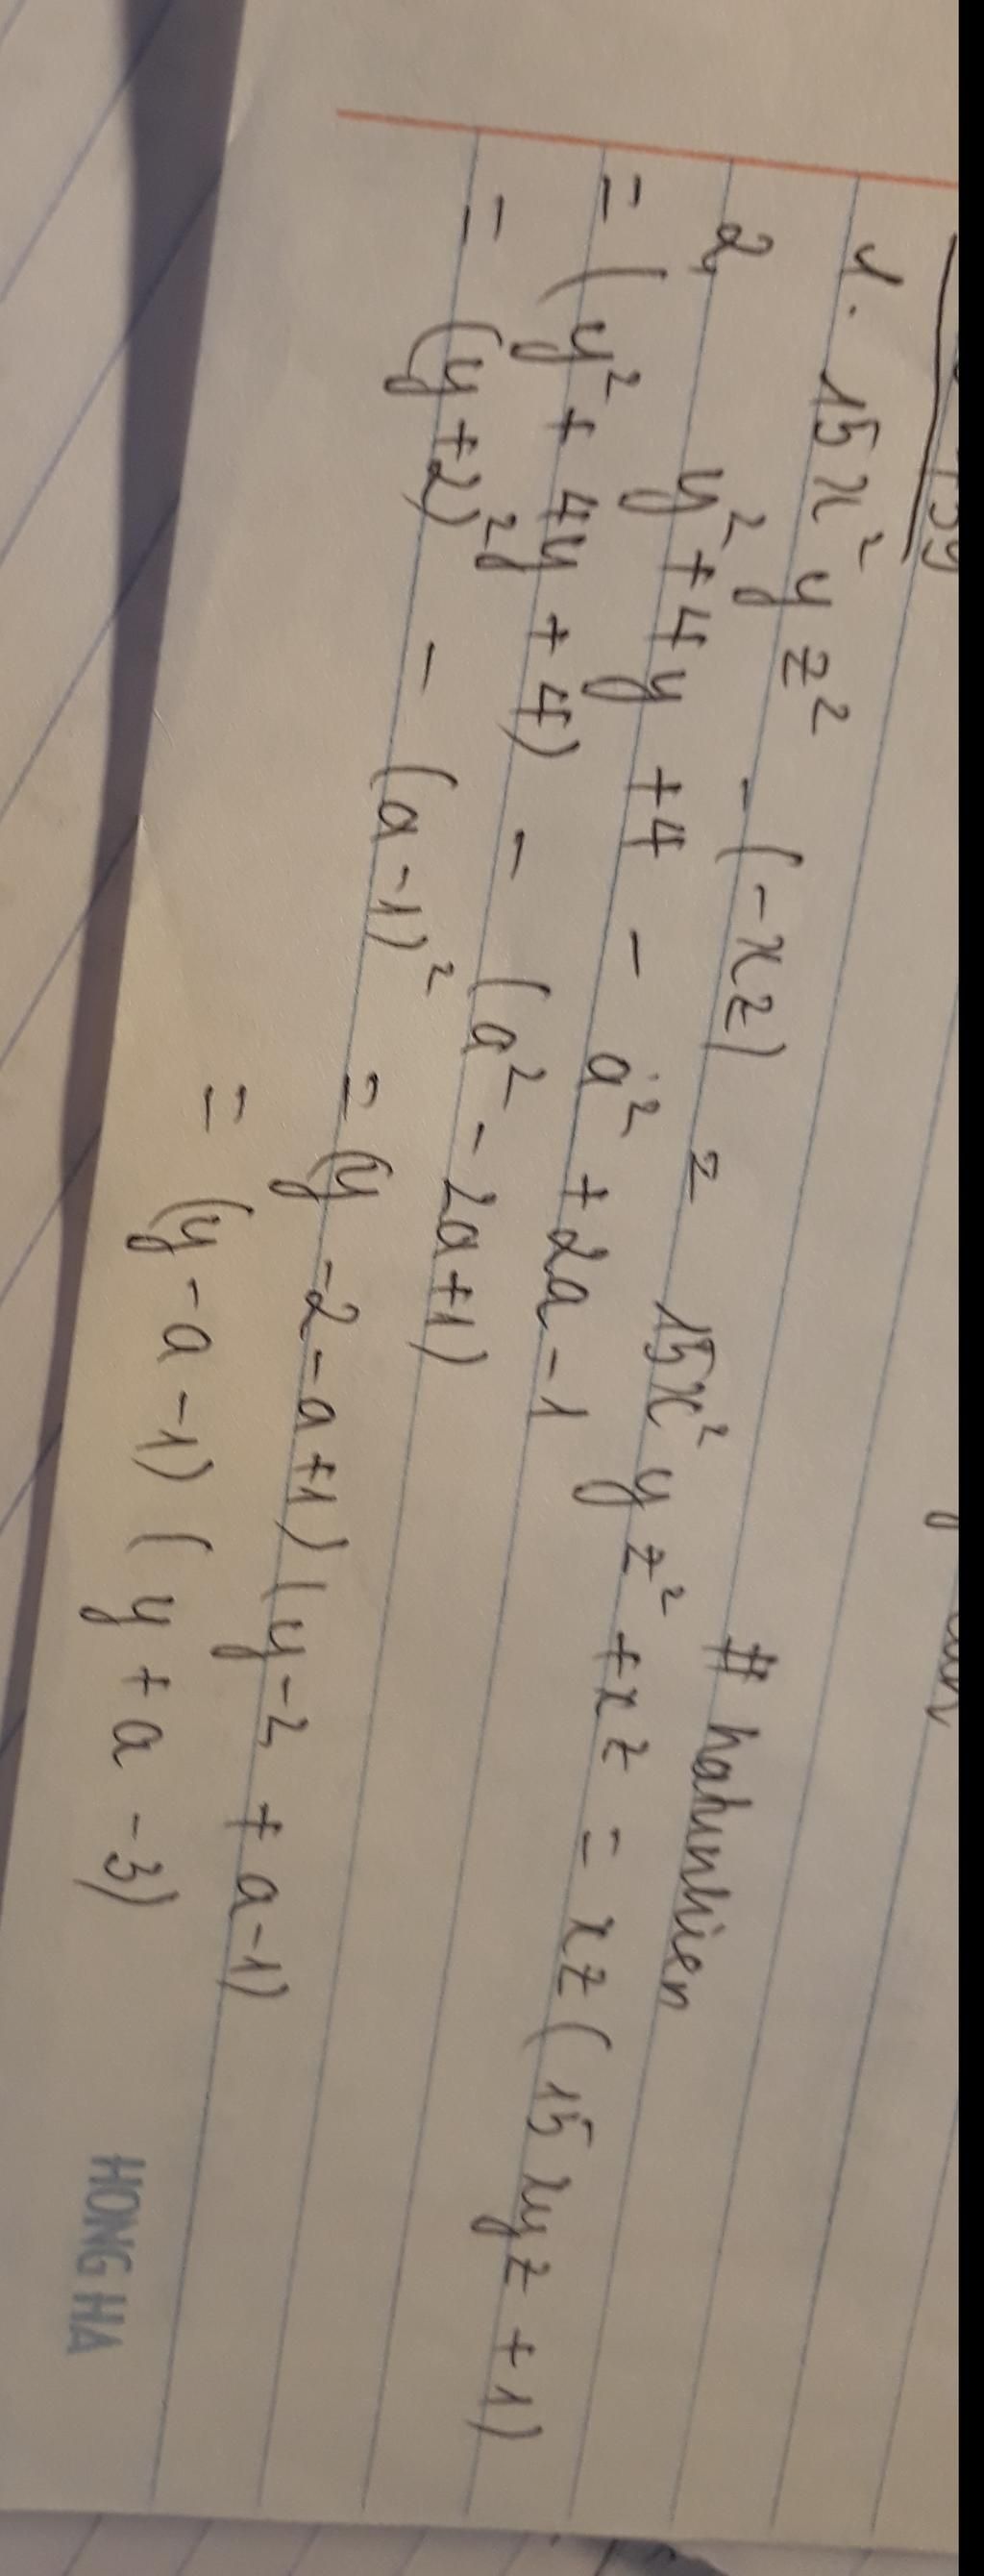 1. 15x²yz² - (-xz) = 15x²yz² + xz = xz(15xyz + 1)
# hahunhien
2, y² + 4y + 4 - a² + 2a - 1
= (y² + 4y + 4) - (a² - 2a + 1)
= (y + 2)² - (a - 1)² = (y - 2 - a + 1)(y - 2 + a - 1)
= (y - a - 1)(y + a - 3)
HONG HA